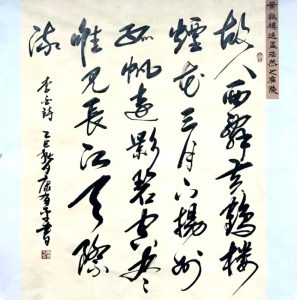 黄鶴樓送孟浩然之廣陵
故人西辭黄鶴樓
煙花三月下揚州
孤帆遠影碧空尽
唯见長江天際
流
李白詩
乙巳